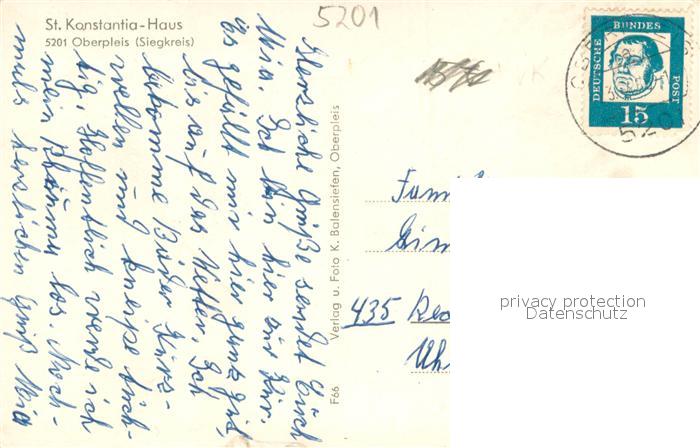 5201
St. Konstantia-Haus
5201 Oberpleis (Siegkreis)
DEUTSCHE BUNDES POST
15
520
Herzliche Grüße sendet Euch
Mia. Ich bin hier zur Kur.
Es gefällt mir hier ganz gut,
bis auf das Wetter. Ich
bekomme Bäder Kurz-
wellen und kneipe tüch-
tig. Hoffentlich werde ich
mein Rheuma los. Noch-
mals herzlichen Gruß Mia
Verlag u. Foto K. Balensiefen, Oberpleis
F66
Fam
435
privacy protection
Datenschutz